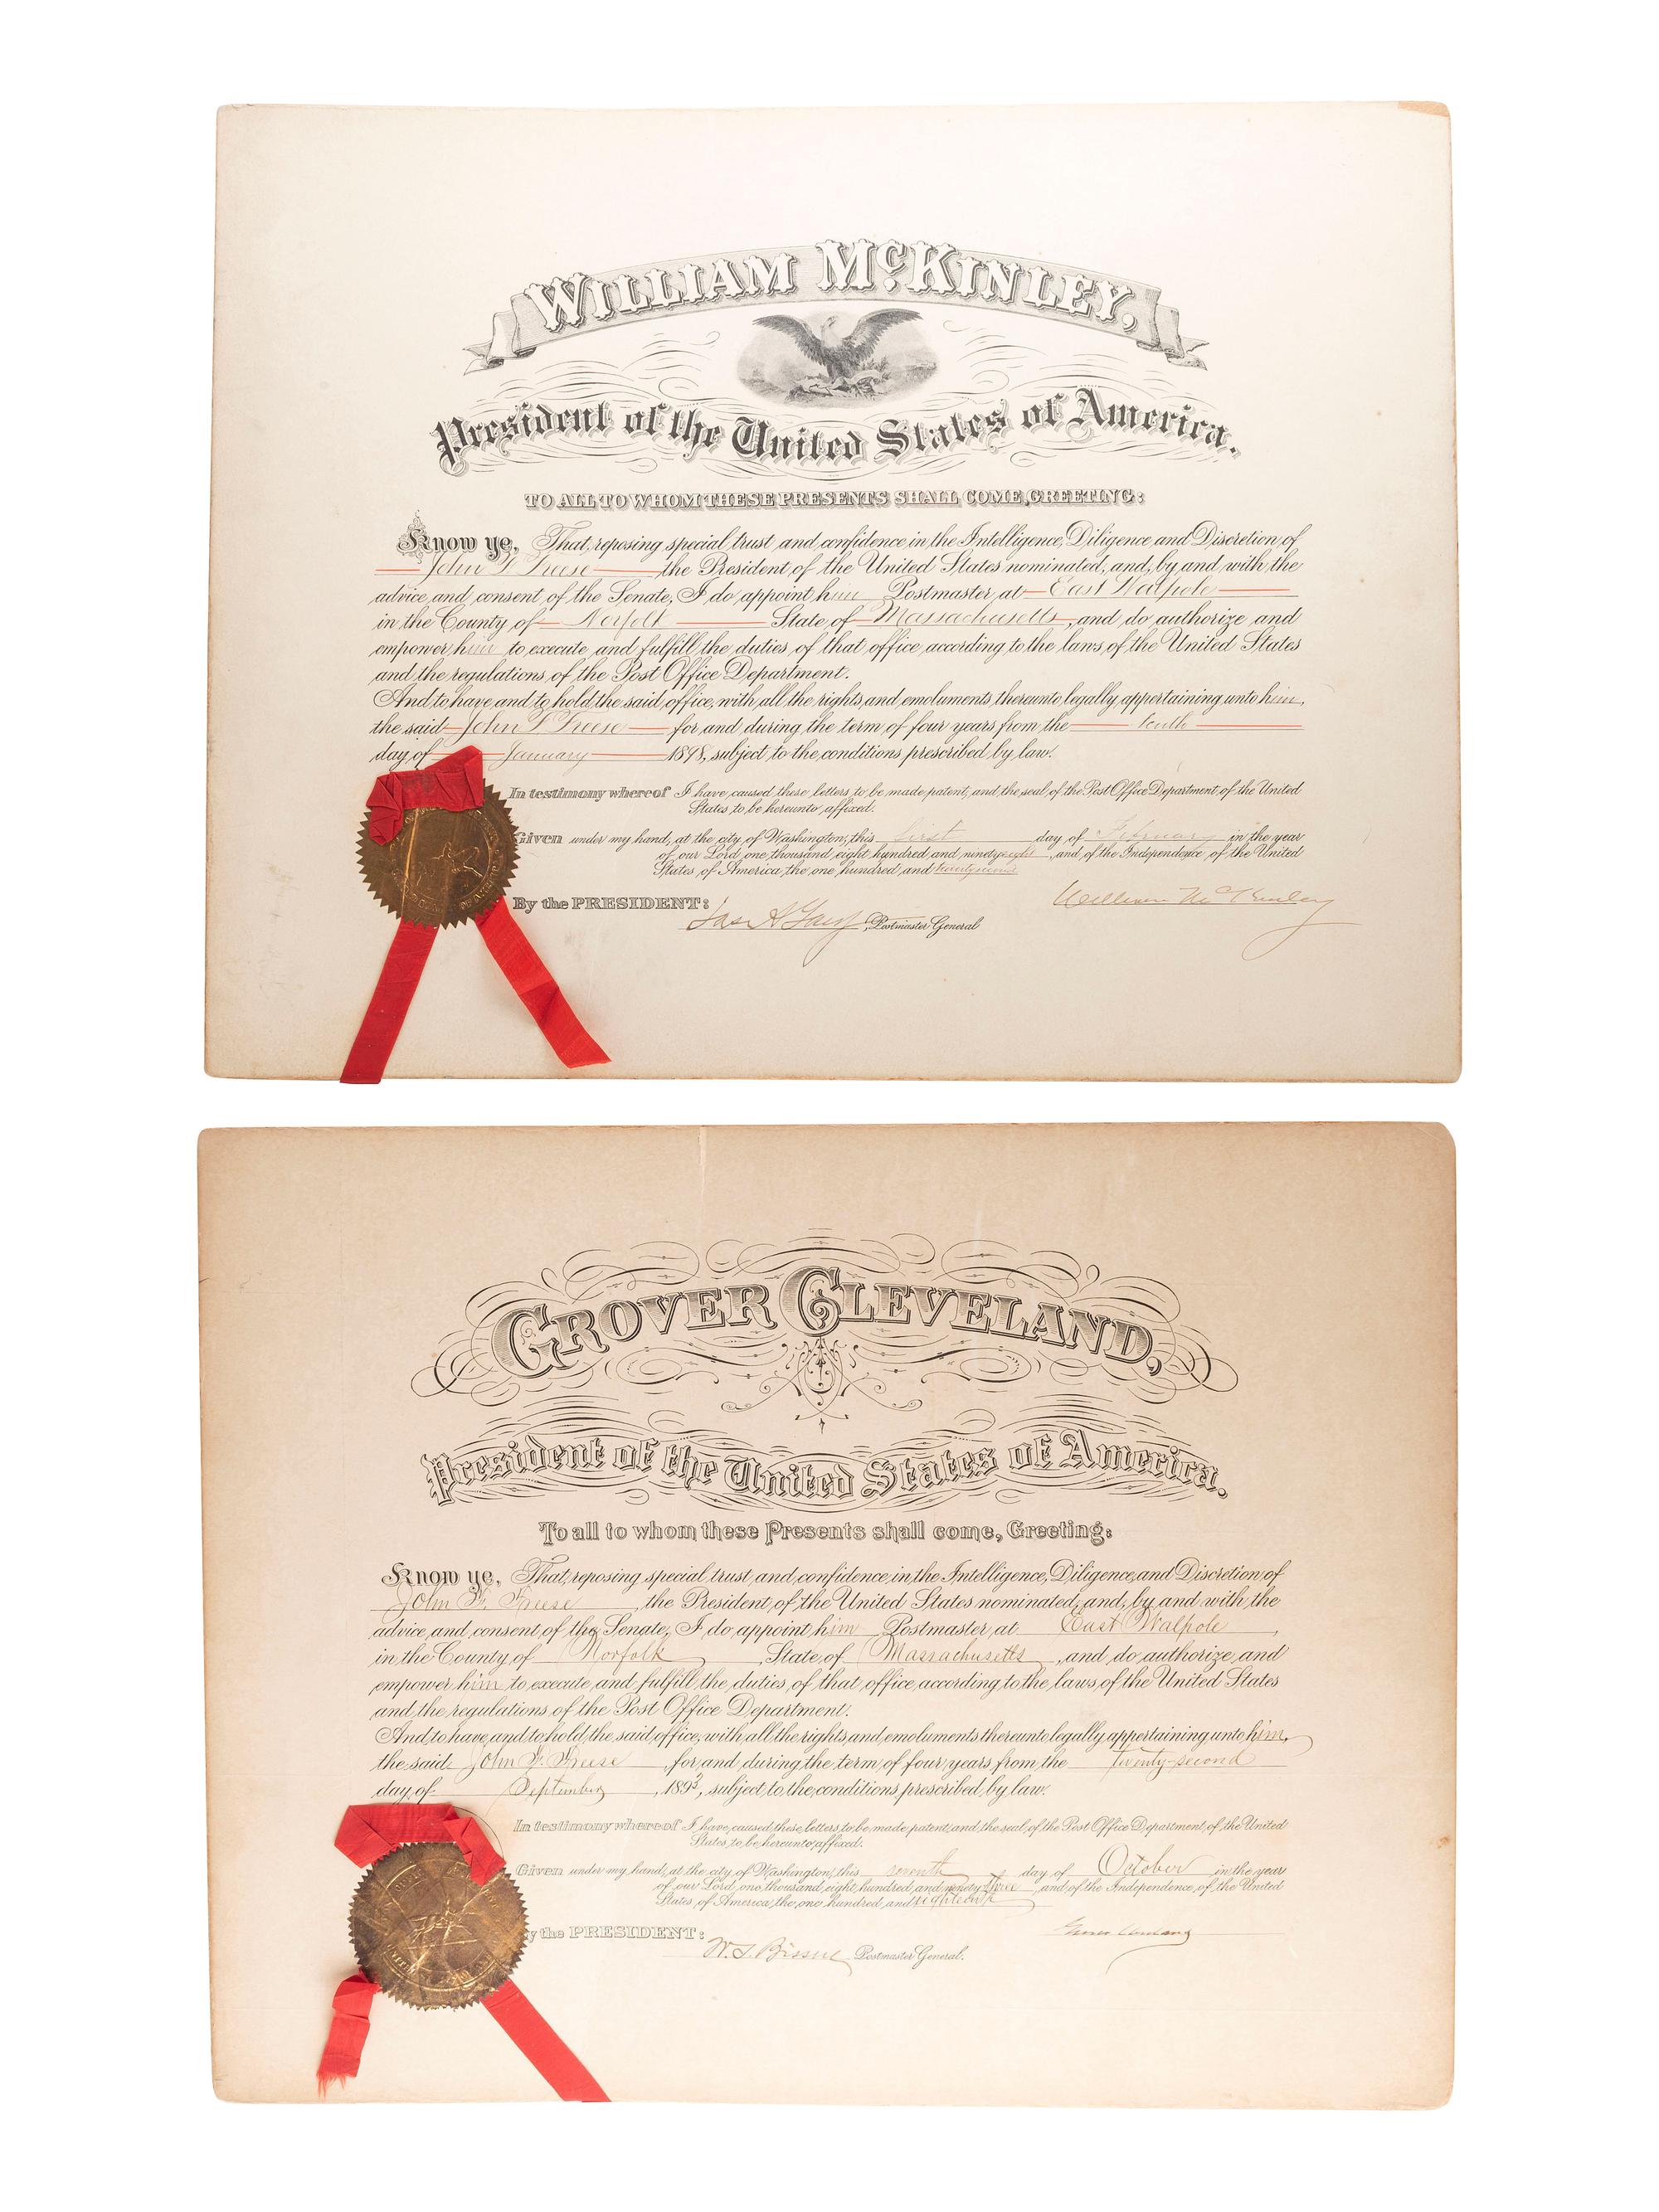 WILLIAM McKINLEY,
President of the United States of America.
TO ALL TO WHOM THESE PRESENTS SHALL COME, GREETING:
Know ye, That, reposing special trust and confidence in the Intelligence, Diligence and Discretion of
John F. Freese the President of the United States nominated, and, by and with the
advice and consent of the Senate, I do appoint him Postmaster at East Walpole
in the County of Norfolk State of Massachusetts, and do authorize and
empower him to execute and fulfill the duties of that office according to the laws of the United States
and the regulations of the Post Office Department.
And to have and to hold the said office, with all the rights and emoluments thereunto legally appertaining unto him,
the said John F Freese for and during the term of four years from the tenth
day of January 1898, subject to the conditions prescribed by law.
In testimony whereof I have caused these letters to be made patent, and the seal of the Post Office Department of the United
States to be hereunto affixed.
Given under my hand, at the city of Washington, this first day of February in the year
of our Lord one thousand eight hundred and ninety eight, and of the Independence of the United
States of America the one hundred and twenty second
By the PRESIDENT: William McKinley
Jas A Gary, Postmaster General
GROVER CLEVELAND,
President of the United States of America.
To all to whom these Presents shall come, Greeting:
Know ye, That, reposing special trust and confidence in the Intelligence, Diligence and Discretion of
John F. Freese, the President of the United States nominated, and, by and with the
advice and consent of the Senate, I do appoint him Postmaster at East Walpole,
in the County of Norfolk, State of Massachusetts, and do authorize and
empower him to execute and fulfill the duties of that office according to the laws of the United States
and the regulations of the Post Office Department.
And to have and to hold the said office, with all the rights and emoluments thereunto legally appertaining unto him,
the said John F. Freese for and during the term of four years from the twenty-second
day of September, 1893, subject to the conditions prescribed by law.
In testimony whereof I have caused these letters to be made patent, and the seal of the Post Office Department of the United
States to be hereunto affixed.
Given under my hand, at the city of Washington, this seventh day of October in the year
of our Lord one thousand eight hundred and ninety three and of the Independence of the United
States of America the one hundred and eighteenth
y the PRESIDENT: Grover Cleveland
W. S. Bissell Postmaster General.